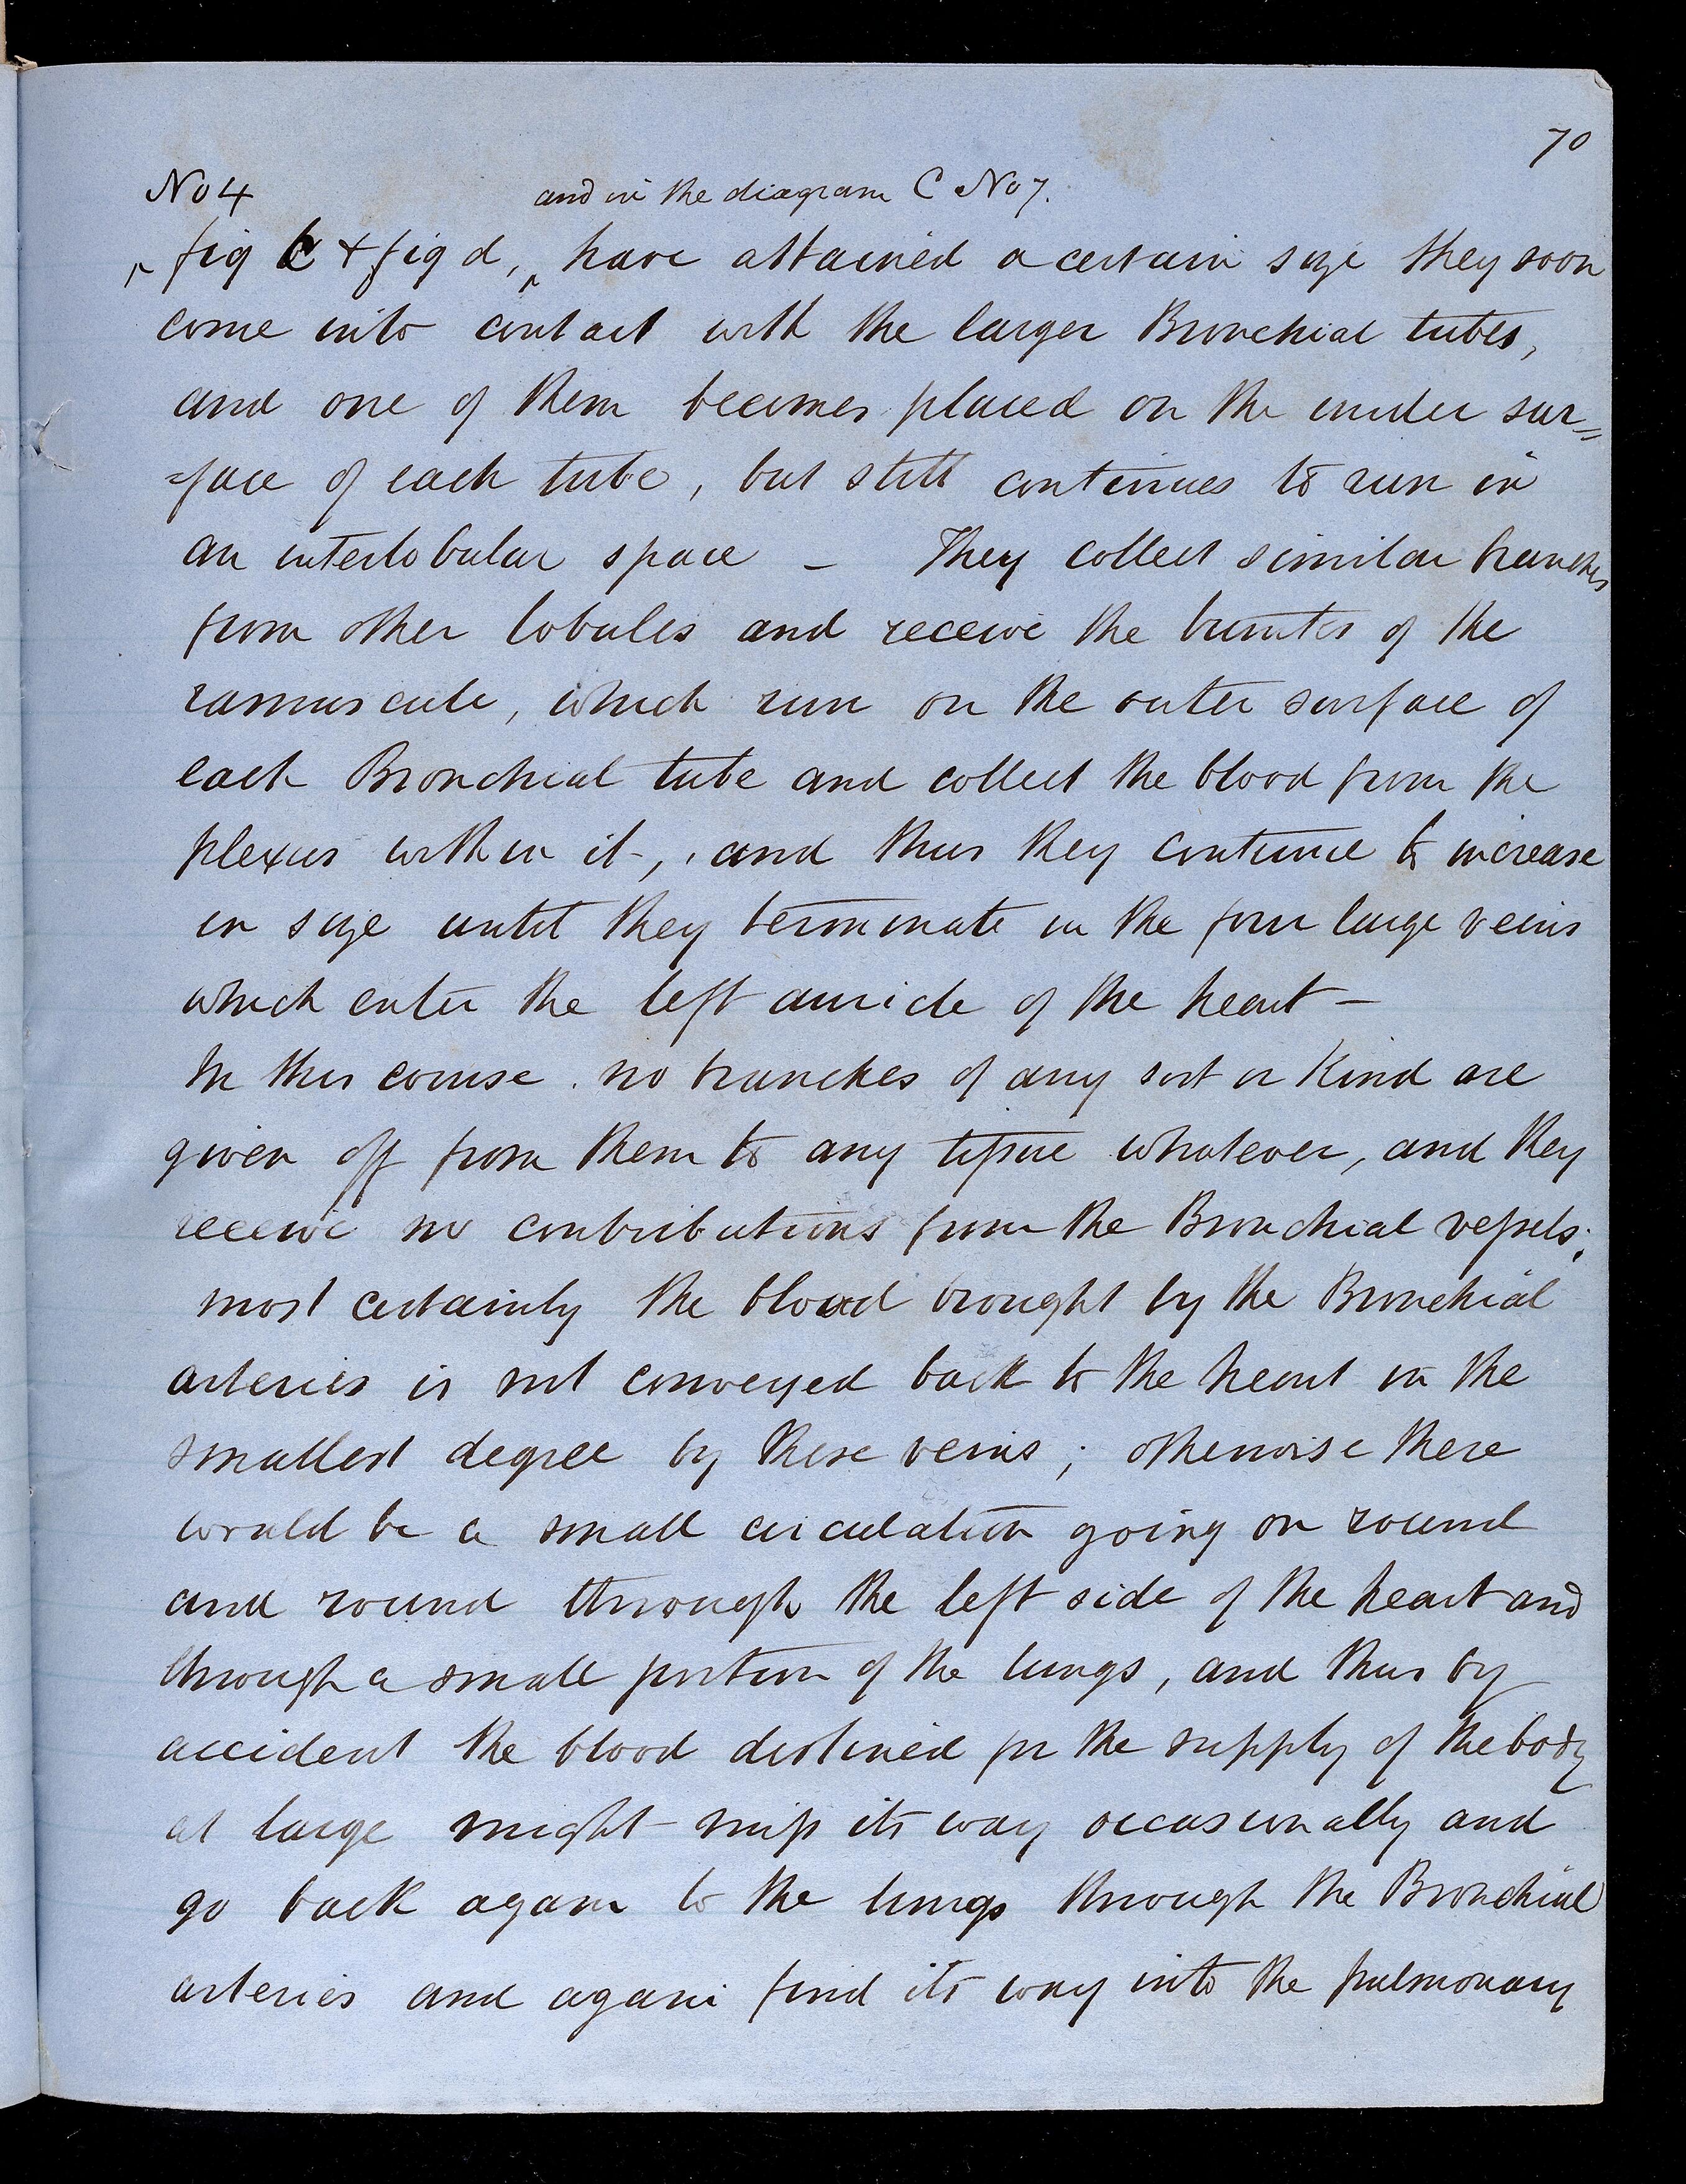 70
No 4 and in the diagram C No 7.
‸ fig C + fig d, ‸ have attained a certain size they soon
come into contact with the larger Bronchial tubes,
and one of them becomes placed on the under sur=
=face of each tube, but still continues to run in
an interlobular space – They collect similar branches
from other lobules and receive the trunks of the
ramuscule, which run on the outer surface of
each Bronchial tube and collect the blood from the
plexus within it, and thus they continue to increase
in size until they terminate in the four large veins
which enter the left auricle of the heart –
In this course no branches of any sort or kind are
given off from them to any tissue whatever, and they
receive no contributions from the Bronchial vessels;
most certainly the blood brought by the Bronchial
arteries is not conveyed back to the heart in the
smallest degree by these veins; otherwise there
would be a small circulation going on round
and round through the left side of the heart and
through a small portion of the lungs, and thus by
accident the blood destined for the supply of the body
at large might miss its way occasionally and
go back again to the lungs through the Bronchial
arteries and again find its way into the pulmonary